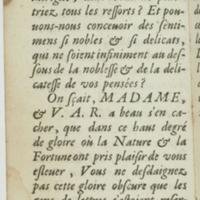 triez, tous les ressorts? Et pou-
uons-nous conceuoir des senti-
mens si nobles & si delicats,
qui ne soient infiniment au des-
sous de la noblesse & de la deli-
catesse de vos pensées?
On sçait, MADAME,
& V. A. R. a beau s'en ca-
cher, que dans ce haut degré
de gloire où la Nature & la
Fortune ont pris plaisir de vous
esleuer, Vous ne desdaignez
pas cette gloire obscure que les